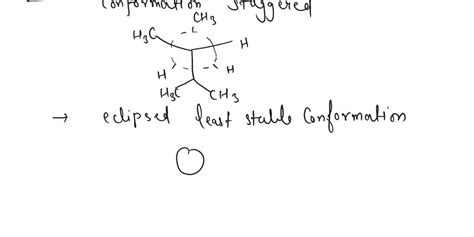 Conformation staggered
CH3
H3C
H
H
H
H3C
CH3
→ eclipsed least stable Conformation